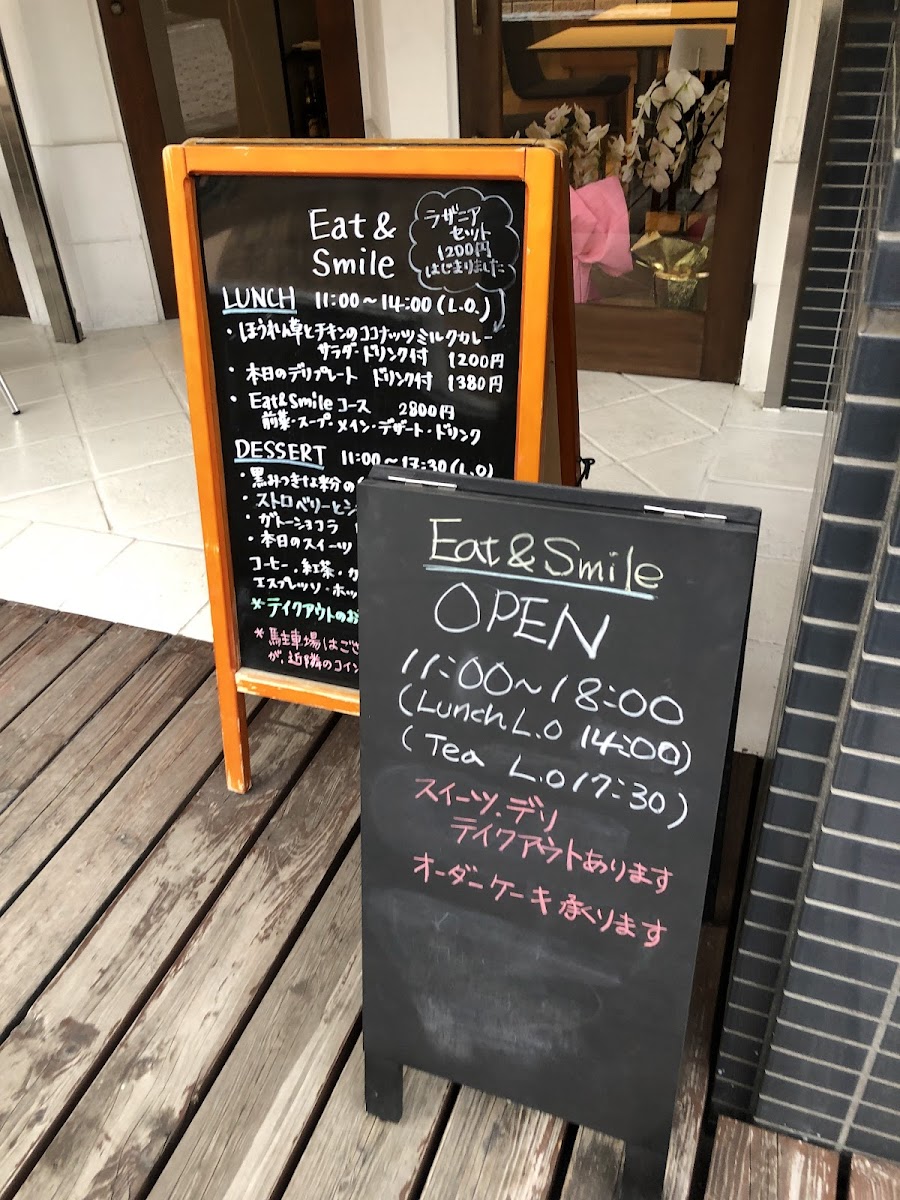 Eat &
Smile
ラザニア
セット
1200円
はじまりました
LUNCH 11:00～14:00 (L.O.)
・ほうれん草とチキンのココナッツミルクカレー
サラダ・ドリンク付 1200円
・本日のデリプレート ドリンク付 1380円
・Eat&Smile コース 2800円
前菜・スープ・メイン・デザート・ドリンク
DESSERT 11:00～17:30 (L.O)
・黒みつきな粉の
・ストロベリーと
・ガトーショコラ
・本日のスイーツ
コーヒー・紅茶・カ
エスプレッソ・ホッ
*テイクアウトのお
*駐車場はござ
が、近隣のコイン
Eat & Smile
OPEN
11:00～18:00
(Lunch L.O 14:00)
(Tea L.O 17:30)
スイーツ・デリ
テイクアウトあります
オーダーケーキ承ります